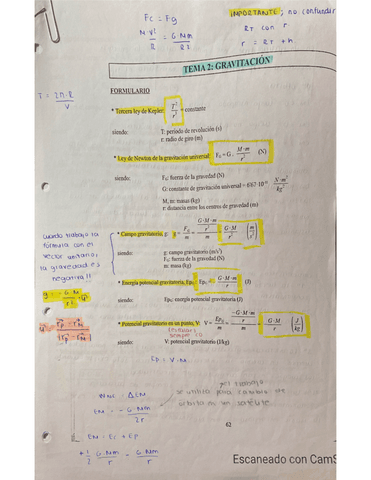 Fc = Fg
IMPORTANTE; no confundir
RT con r
r = RT + h
M·V² / R = G·Mm / RT
TEMA 2: GRAVITACIÓN
FORMULARIO
T = 2π·R / V
* Tercera ley de Kepler: T² / r³ = constante
siendo: T: periodo de revolución (s)
r: radio de giro (m)
* Ley de Newton de la gravitación universal: F_G = G · M·m / r² (N)
siendo: F_G: fuerza de la gravedad (N)
G: constante de gravitación universal = 6'67·10 N·m² / kg²
M, m: masas (kg)
r: distancia entre los centros de gravedad (m)
cuando trabajo la
fórmula con el
vector unitario,
la gravedad es
negativa!!
* Campo gravitatorio, g: g = F_G / m = G·M·m / r² / m = G·M / r² (m / s²)
siendo: g: campo gravitatorio (m/s²)
F_G: fuerza de la gravedad (N)
m: masa (kg)
* Energía potencial gravitatoria, Ep_G: Ep_G = - G·M·m / r (J)
siendo: Ep_G: energía potencial gravitatoria (J)
* Potencial gravitatorio en un punto, V: V = Ep_G / m = -G·M·m / r / m = - G·M / r (J / kg)
siempre
siendo: V: potencial gravitatorio (J/kg)
Ep = V·M
ΔEM
se utiliza para cambio de
EM = - G·Mm / 2r
62
EM = Ec + Ep
+ 1/2 G·Mm / r - G·Mm / r
Escaneado con CamS